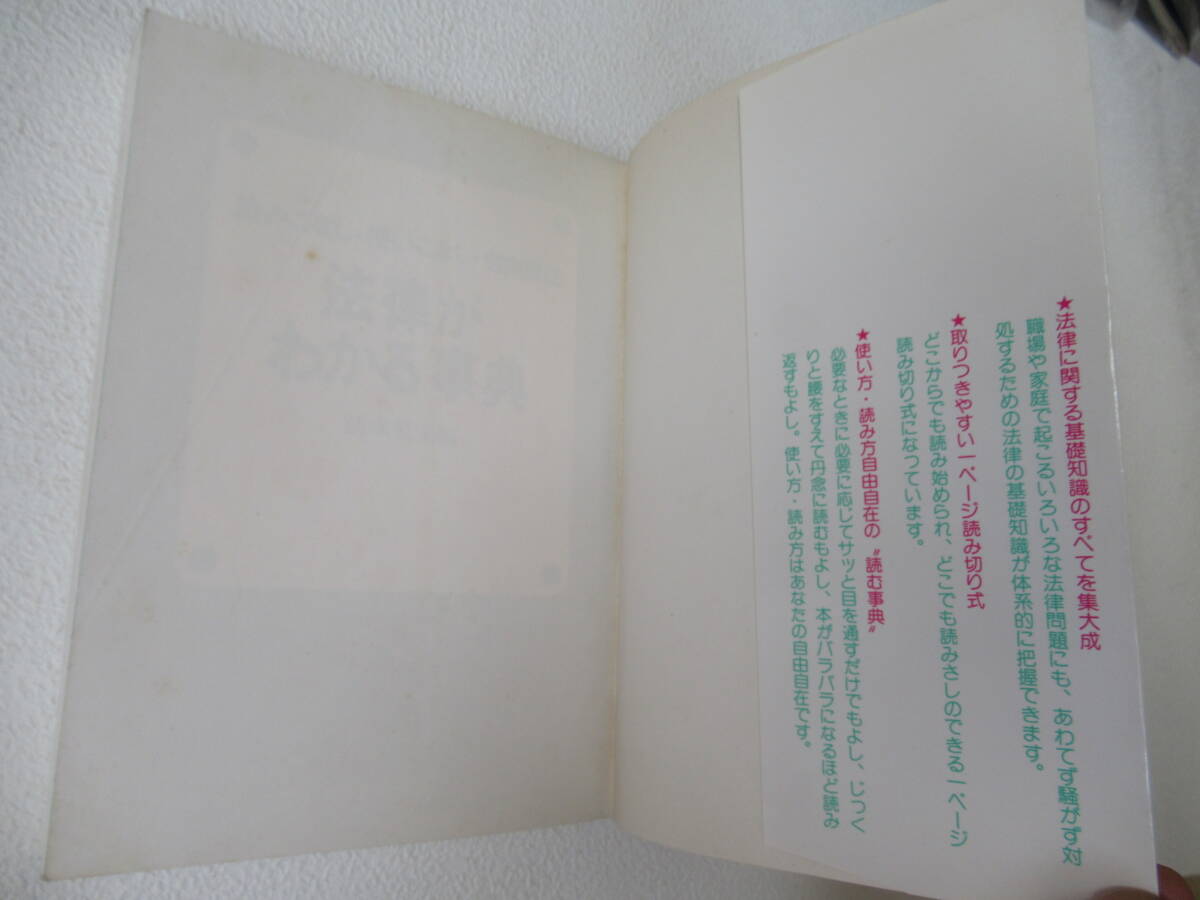 ★法律に関する基礎知識のすべてを集大成
職場や家庭で起こるいろいろな法律問題にも、あわてず騒がず対
処するための法律の基礎知識が体系的に把握できます。
★取りつきやすい一ページ読み切り式
どこからでも読み始められ、どこでも読みさしのできる一ページ
読み切り式になっています。
★使い方・読み方自由自在の〝読む事典〟
必要なときに必要に応じてサッと目を通すだけでもよし、じっく
りと腰をすえて丹念に読むもよし、本がバラバラになるほど読み
返すもよし。使い方・読み方はあなたの自由自在です。